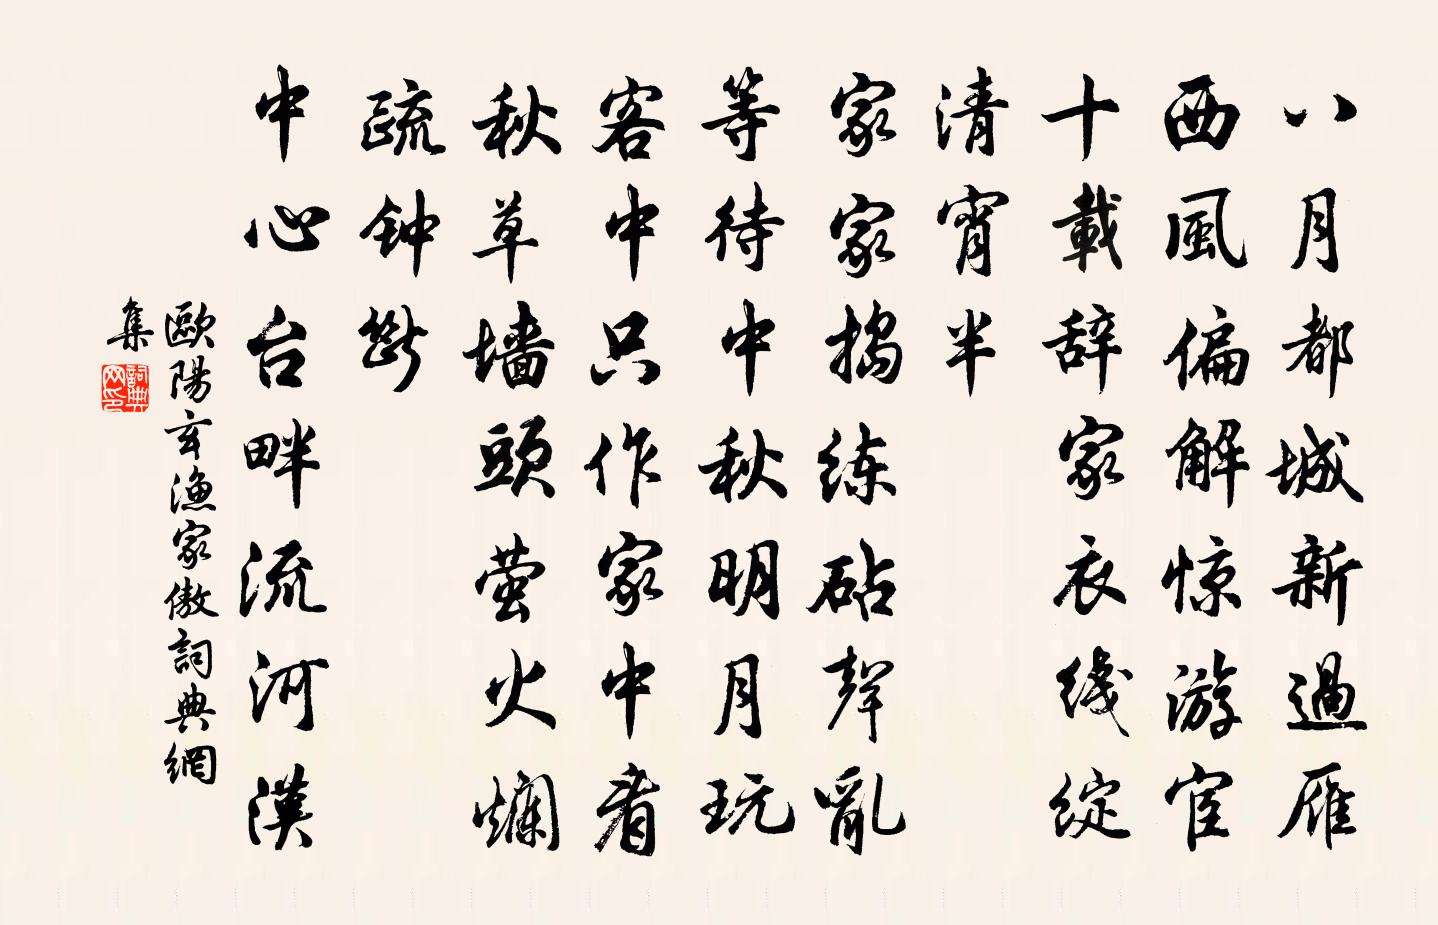 八月都城新過雁
西風偏解惊游宦
十載辞家衣线綻
清宵半
家家搗练砧聲亂
等待中秋明月玩
客中只作家中看
秋草墙頭萤火爛
疏钟斷
中心台畔流河漢
歐陽玄漁家傲詞典網
集
詞典
网印